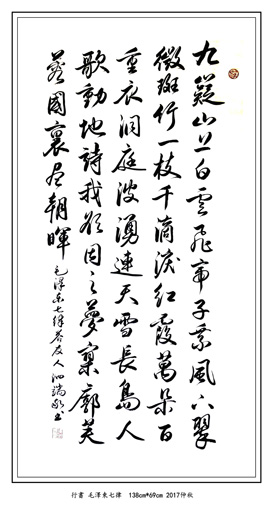 九嶷山上白雲飛帝子乘風下翠
微斑竹一枝千滴淚紅霞萬朵百
重衣洞庭波湧連天雪長島人
歌動地詩我欲因之夢寥廓芙
蓉國裏尽朝暉 毛澤東七律答友人 書
行書 毛澤東七律 138cm*69cm 2017仲秋